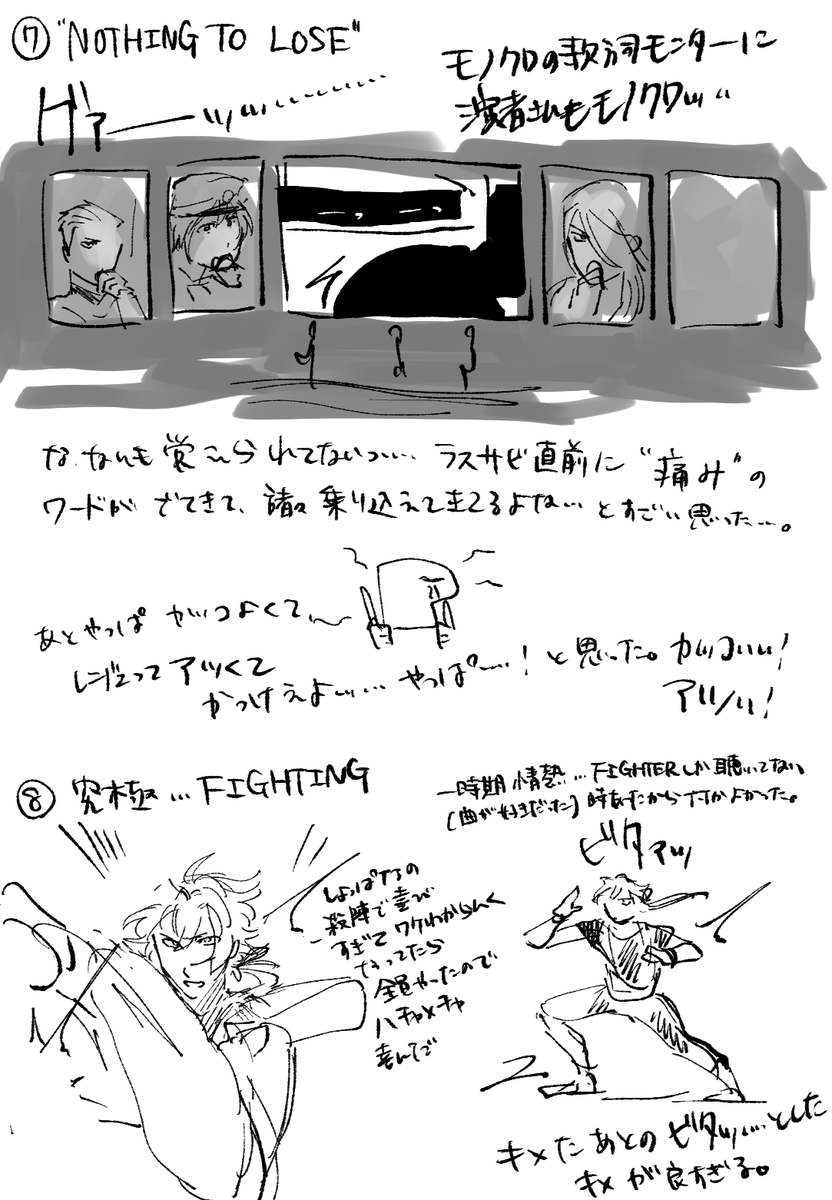 ⑦ "NOTHING TO LOSE"
モノクロの歌詞モニターに
演者さんもモノクロッ…
な、なんも覚えられてないっ… ラスサビ直前に "痛み" の
ワードが でてきて、諸々乗り込えて生きてるよな…とすごい思った…。
あとやっぱ カッコよくて、
レジェって アツくて
かっけぇよ…… やっぱ…！と思った。カッコいい！
アツい！
⑧ 究極…FIGHTING
一時期 情熱…FIGHTERしか聴いてない
(曲が好きだった) 時あったから
よかった。
ビタァッ
しょっぱなの
殺陣で喜び
すぎてワケわからんく
なってたら
全員やったので
ハチャメチャ
喜んで
キメたあとの ビタッ…とした
キメが良すぎる。